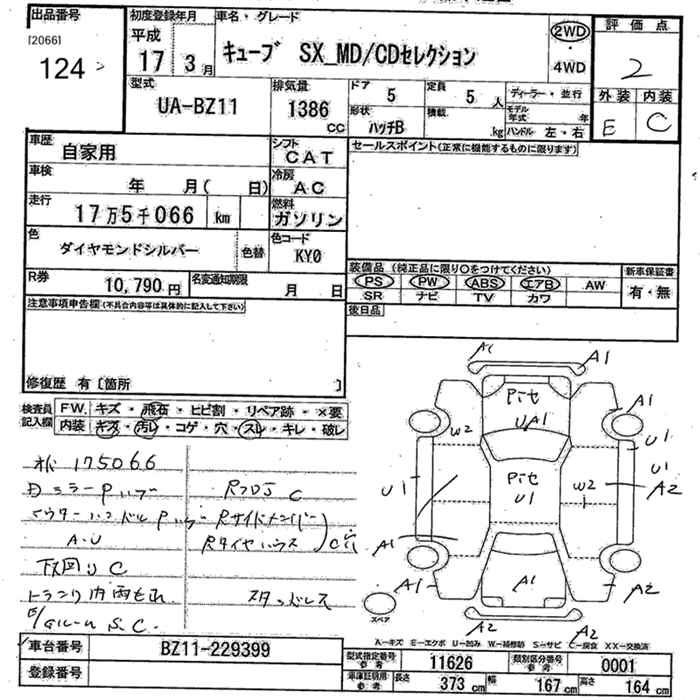 出品番号
[2066]
124
初度登録年月
平成
17年 3月
車名・グレード
キューブ SX_MD/CDセレクション
2WD
・
4WD
評価点
2
外装 内装
E C
型式
UA-BZ11
排気量
1386 CC
ドア 5
定員 5 人
形状 ハッチB
積載 .kg
ディーラー・並行
モデル年式 年
ハンドル 左・右
車歴 自家用
シフト CAT
セールスポイント(正常に機能するものに限ります)
車検 年 月( 日)
冷房 AC
走行 17万5千066 km
燃料 ガソリン
色 ダイヤモンドシルバー
色替
色コード KY0
R券 10,790円
名変通知期限 月 日
装備品 (純正品に限り○をつけてください)
新車保証書
PS PW ABS エアB AW
SR ナビ TV カワ
有・無
注意事項申告欄(不具合内容等は具体的に記入して下さい)
後日品
修復歴 有〔箇所 〕
検査員記入欄
FW. キズ・飛石・ヒビ割・リペア跡・×要
内装 キズ・汚レ・コゲ・穴・スレ・キレ・破レ
175066
C
A・U
C
トランク内雨もれ
S.C.
A1 A1
Pite
UA1
A1 A1
W2
U1
U1 Pite U1
W2
U1
A2
A1
A1 A1 A2
A2 A2
スペア
A−キズ E−エクボ U−凹み W−補修跡 S−サビ C−腐食 XX−交換済
車台番号 BZ11-229399
登録番号
型式指定番号 参考 11626
類別区分番号 参考 0001
車庫証明用 参考 長さ 373 cm 幅 167 cm 高さ 164 cm